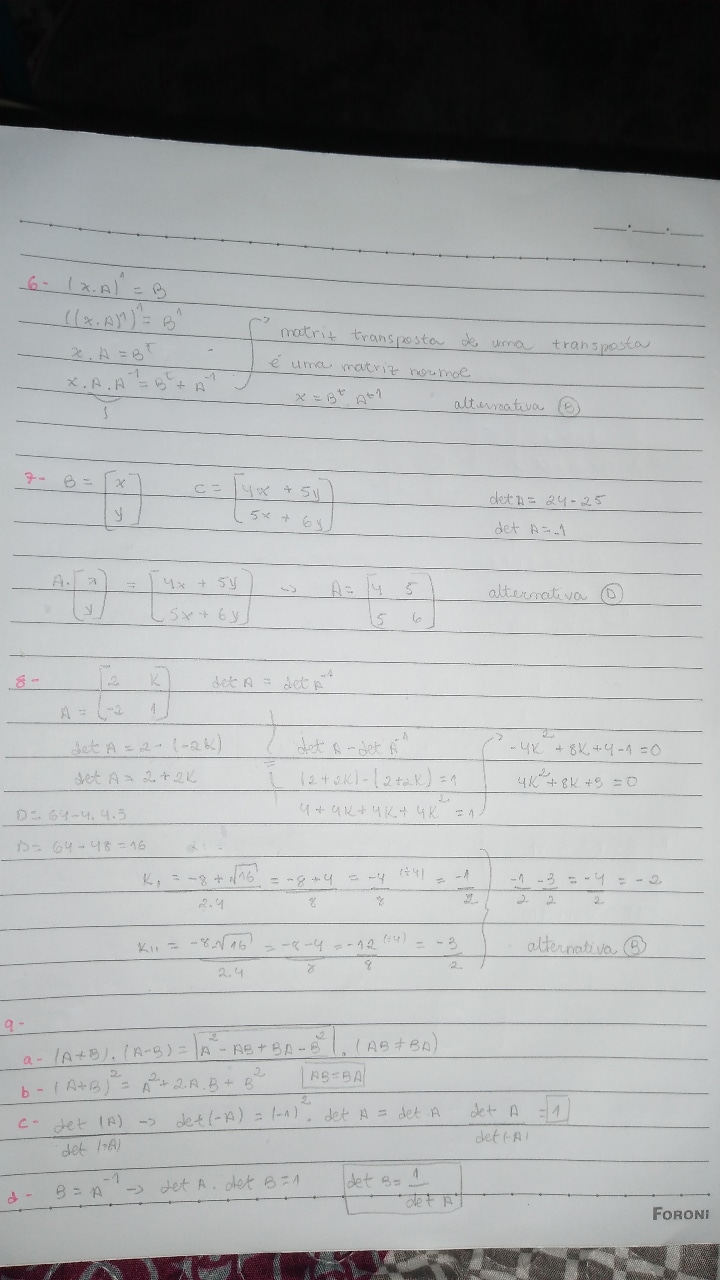 6- (x.A)¹ = B
((x.A)¹)¹ = B¹
x.A = Bᵗ
x.A.A⁻¹ = Bᵗ + A⁻¹
1
matriz transposta de uma transposta
é uma matriz normal
x = Bᵗ. Aᵗ⁻¹ alternativa B
7- B = [x y] C = [4x + 5y 5x + 6y] det A = 24-25
det A = -1
A.[x y] = [4x + 5y 5x + 6y] → A = [4 5 5 6] alternativa D
8- A = [2 K -2 1] det A = det A⁻¹
det A = 2-(-2K)
det A = 2+2K
det A - det A⁻¹
(2+2K)-(2+2K) = 1
4+4K+4K+4K² = 1
-4K² + 8K+4-1=0
4K²+8K+3 =0
D= 64-4.4.3
D= 64-48=16
K₁ = -8+√16/2.4 = -8+4/8 = -4/8 (÷4) = -1/2
K₁₁ = -8√16/2.4 = -8-4/8 = -12/8 (÷4) = -3/2
-1/2 -3/2 = -4/2 = -2
alternativa B
9-
a- (A+B).(A-B) = |A² - AB + BA - B²|. (AB ≠ BA)
b- (A+B)² = A²+2.A.B+ B² AB=BA
c- det (A)/det (-A) → det(-A) = (-1)². det A = det A det A/det(-A) = 1
d- B = A⁻¹ → det A. det B = 1 det B = 1/det A
FORONI